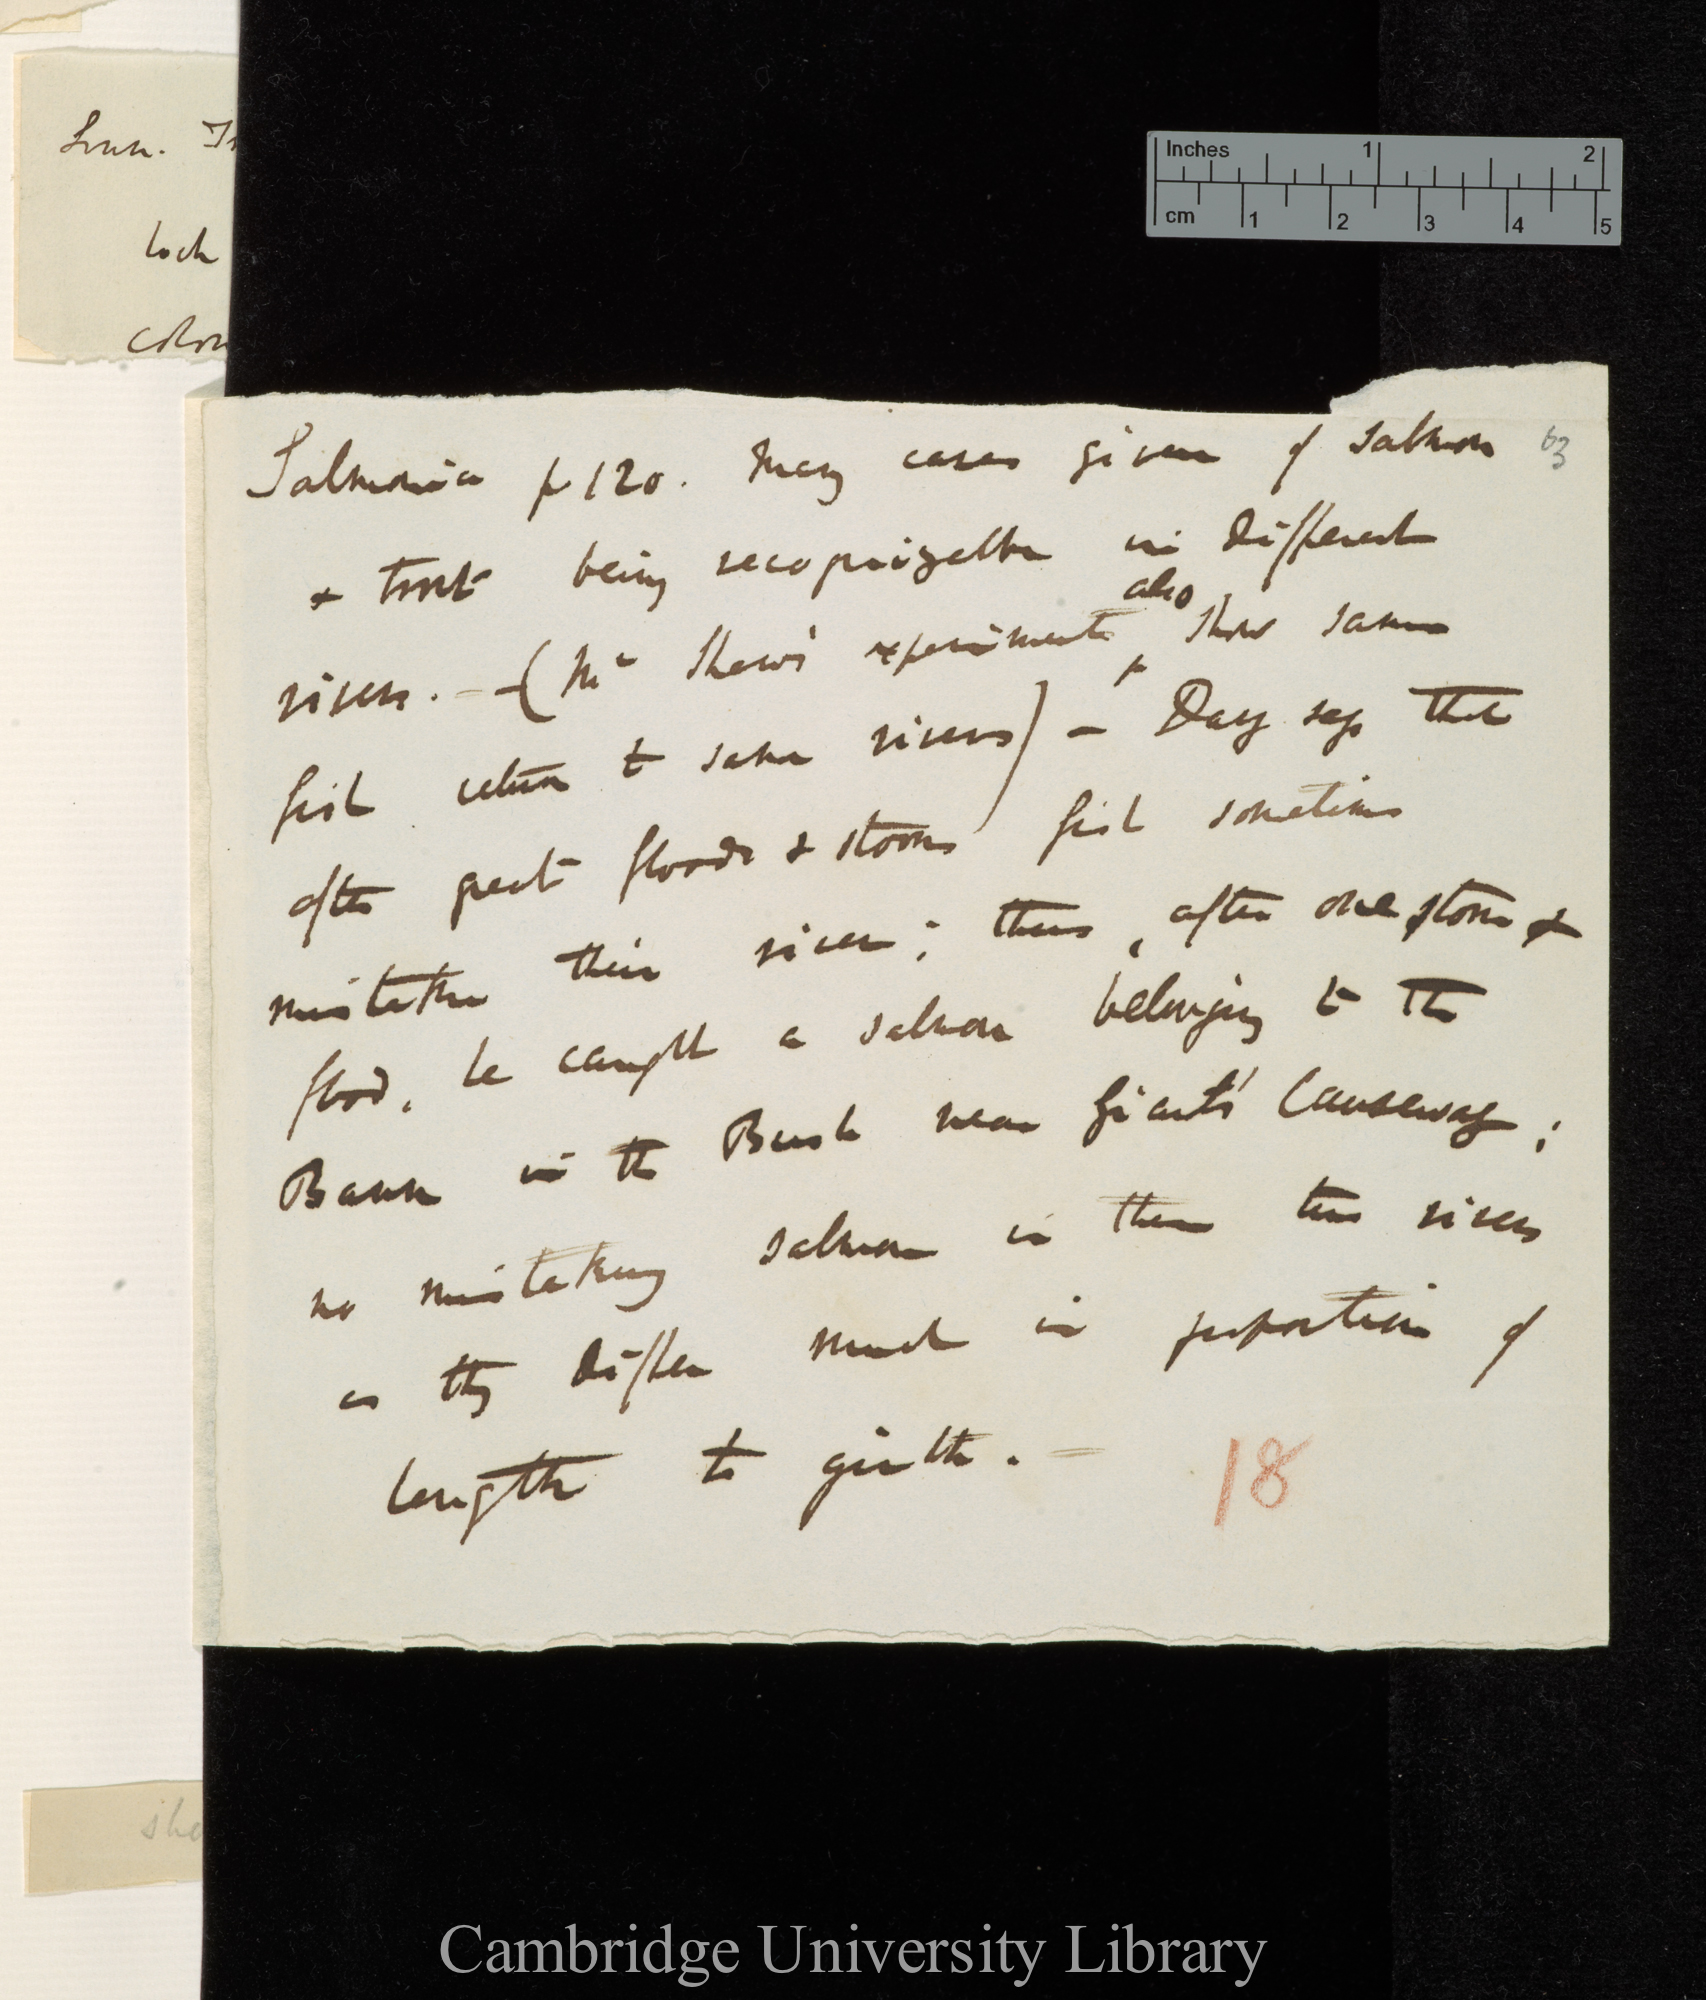 Linn. Tr
Loch
colou
Inches 1 2
cm 1 2 3 4 5
63
Salmonia p 120. Many cases given of salmon
& trout being recognizable in different
rivers. — (Mr Shaw's experiments also show same
fish return to same rivers) — Davy says that
after great floods & storms fish sometimes
mistake their river; thus, after one storm &
flood, he caught a salmon belonging to the
Bann in the Bush near Giants' Causeway;
no mistaking salmon in these two rivers
as they differ much in proportion of
length to girth. —
18
sho
Cambridge University Library